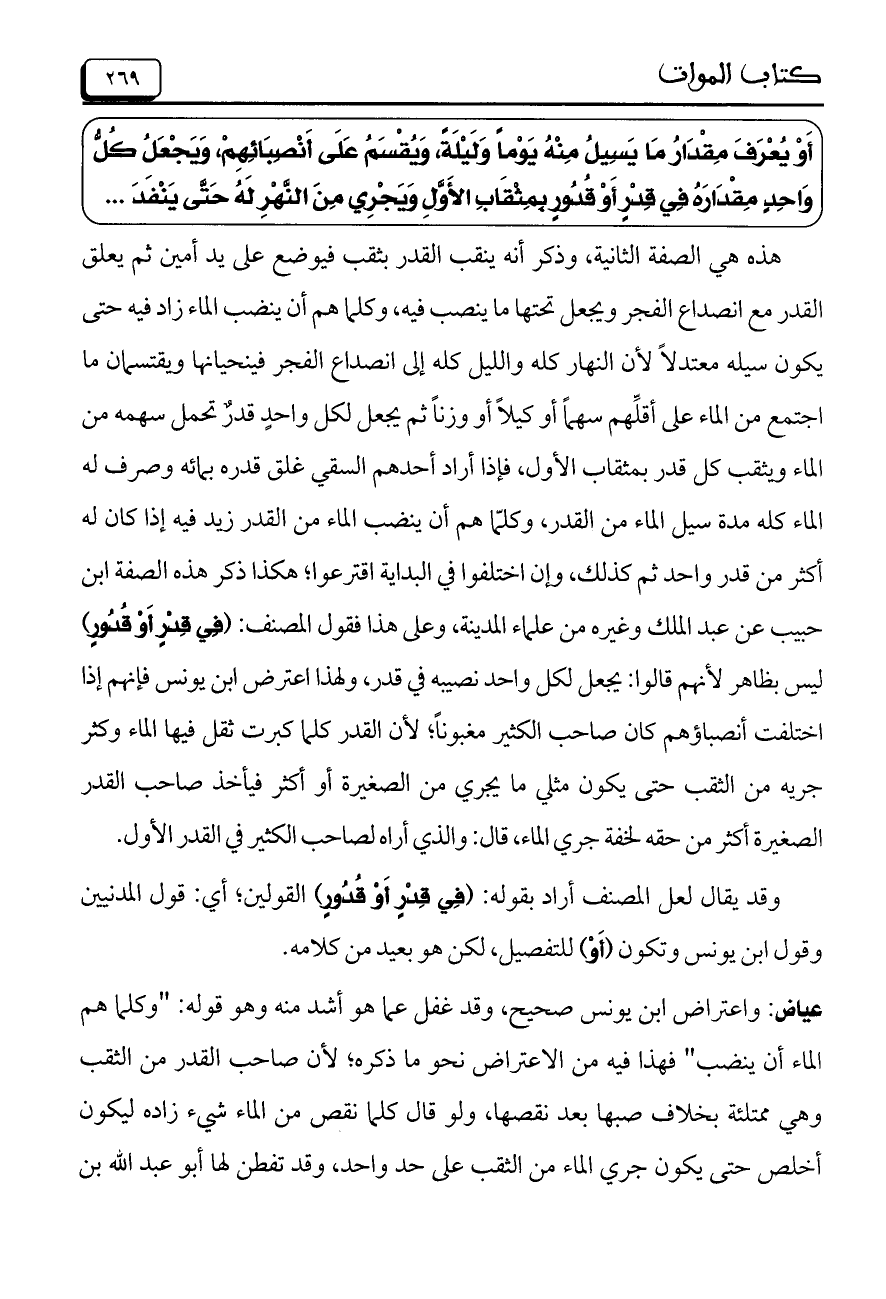 كتاب الموات
٢٦٩
أَوْ يُعْرَفَ مِقْدَارُ مَا يَسِيلُ مِنْهُ يَوْماً وَلَيْلَةً، وَيُقْسَمُ عَلَى أَنْصِبَائِهِمْ، وَيَجْعَلُ كُلُّ
وَاحِدٍ مِقْدَارَهُ فِي قِدْرٍ أَوْ قُدُورٍ بِمِثْقَابِ الأَوَّلِ وَيَجْرِي مِنَ النَّهْرِ لَهُ حَتَّى يَنْفَدَ ...
هذه هي الصفة الثانية، وذكر أنه ينقب القدر بثقب فيوضع على يد أمين ثم يعلق
القدر مع انصداع الفجر ويجعل تحتها ما ينصب فيه، وكلما هم أن ينضب الماء زاد فيه حتى
يكون سيله معتدلاً لأن النهار كله والليل كله إلى انصداع الفجر فينحيانها ويقتسمان ما
اجتمع من الماء على أقلِّهم سهماً أو كيلاً أو وزناً ثم يجعل لكل واحدٍ قدرٌ تحمل سهمه من
الماء ويثقب كل قدر بمثقاب الأول، فإذا أراد أحدهم السقي غلق قدره بمائه وصرف له
الماء كله مدة سيل الماء من القدر، وكلّما هم أن ينضب الماء من القدر زيد فيه إذا كان له
أكثر من قدر واحد ثم كذلك، وإن اختلفوا في البداية اقترعوا؛ هكذا ذكر هذه الصفة ابن
حبيب عن عبد الملك وغيره من علماء المدينة، وعلى هذا فقول المصنف: (فِي قِدْرٍ أَوْ قُدُورٍ)
ليس بظاهر لأنهم قالوا: يجعل لكل واحد نصيبه في قدر، ولهذا اعترض ابن يونس فإنهم إذا
اختلفت أنصباؤهم كان صاحب الكثير مغبوناً؛ لأن القدر كلما كبرت ثقل فيها الماء وكثر
جريه من الثقب حتى يكون مثلي ما يجري من الصغيرة أو أكثر فيأخذ صاحب القدر
الصغيرة أكثر من حقه لخفة جري الماء، قال: والذي أراه لصاحب الكثير في القدر الأول.
وقد يقال لعل المصنف أراد بقوله: (فِي قِدْرٍ أَوْ قُدُورٍ) القولين؛ أي: قول المدنيين
وقول ابن يونس وتكون (أَوْ) للتفصيل، لكن هو بعيد من كلامه.
عياض: واعتراض ابن يونس صحيح، وقد غفل عما هو أشد منه وهو قوله: "وكلما هم
الماء أن ينضب" فهذا فيه من الاعتراض نحو ما ذكره؛ لأن صاحب القدر من الثقب
وهي ممتلئة بخلاف صبها بعد نقصها، ولو قال كلما نقص من الماء شيء زاده ليكون
أخلص حتى يكون جري الماء من الثقب على حد واحد، وقد تفطن لها أبو عبد الله بن